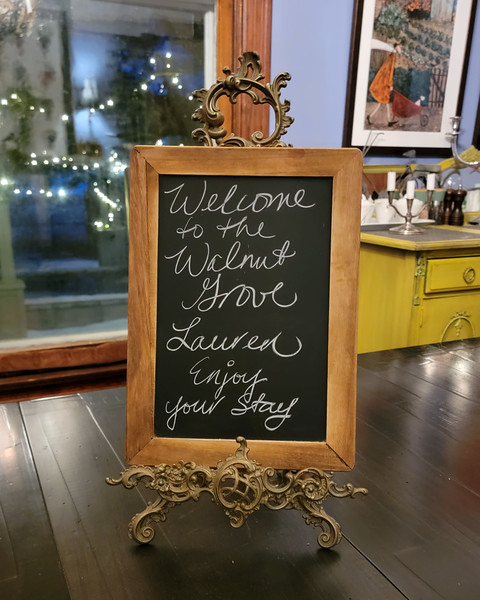 Welcome
to the
Walnut
Grove
Lauren
Enjoy
your Stay